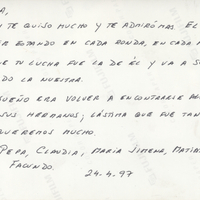 A,
TE QUISO MUCHO Y TE ADMIRÓ MAS. EL
ESTANDO EN CADA RONDA, EN CADA M
TU LUCHA FUE LA DE ÉL Y VA A S
DO LA NUESTRA.
SUEÑO ERA VOLVER A ENCONTRARLE
SUS HERMANOS; LÁSTIMA QUE FUE TAN
QUEREMOS MUCHO
PEPA, CLAUDIA, MARÍA JIMENA, MATÍAS
FACUNDO.
24-4-97